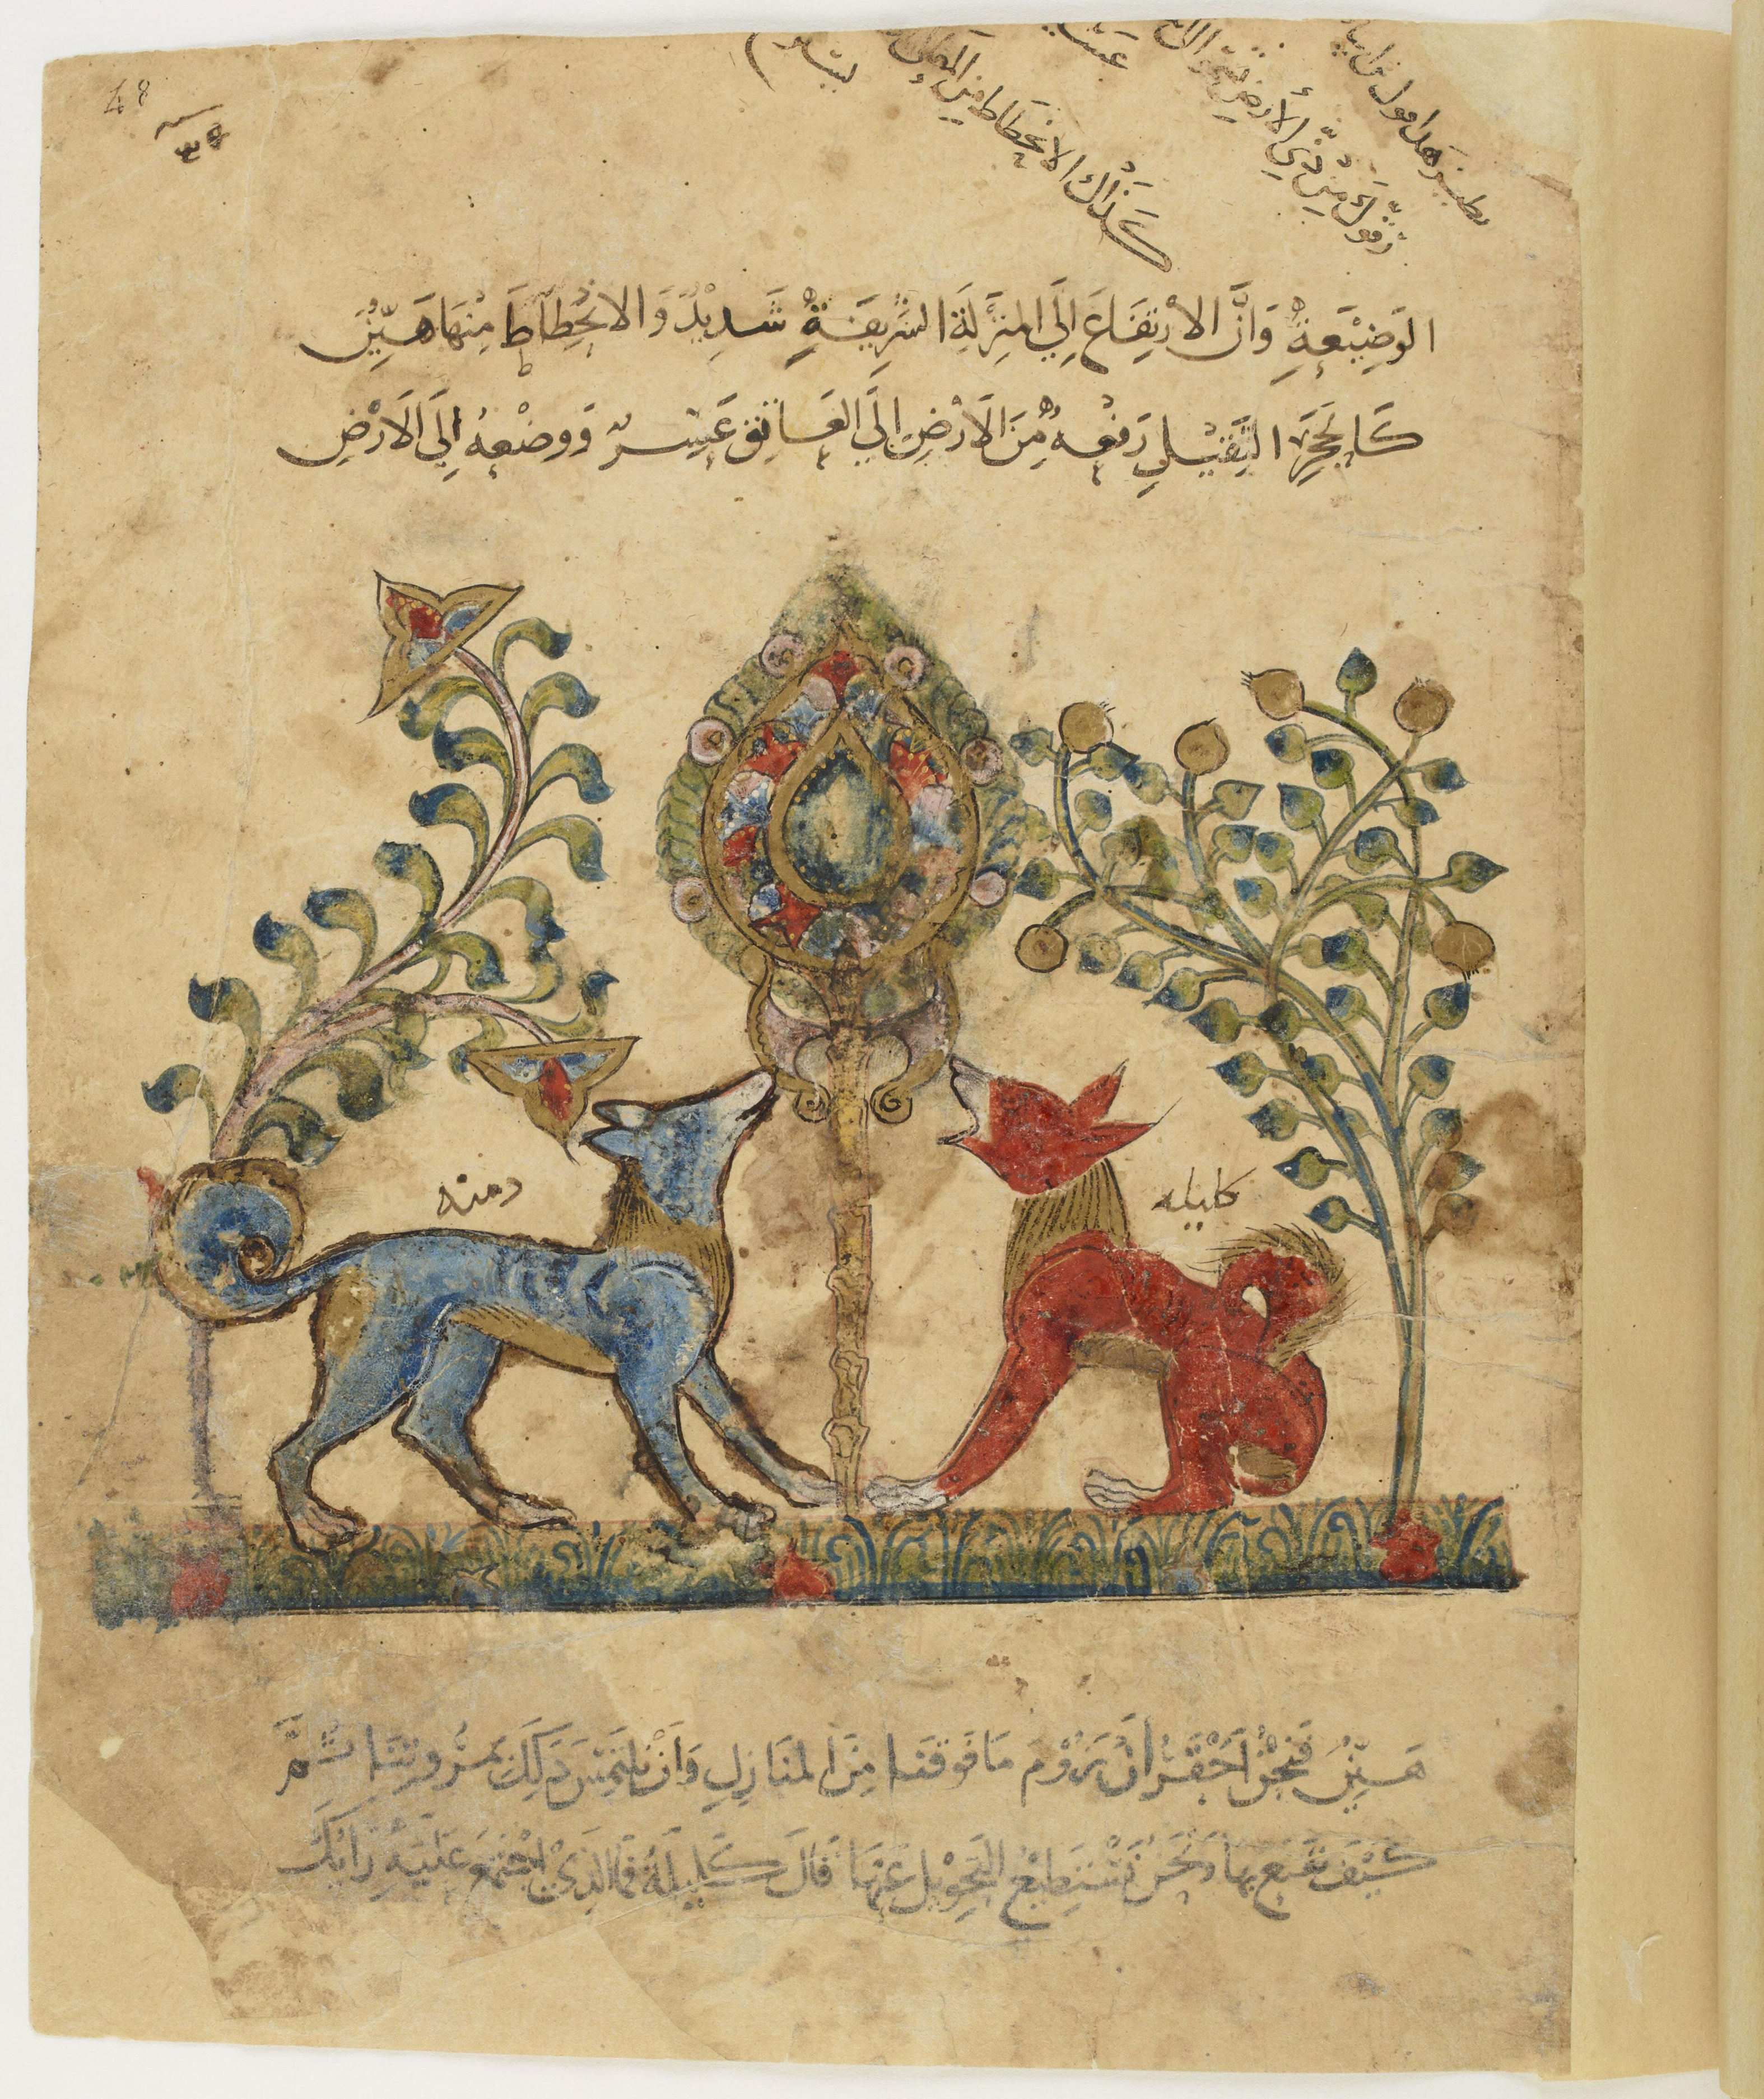 كذلك الانحطاط من
الوَضِيْعَةِ وَاَنَّ الارْتِفَاعَ اِلَي المَنزِلَةِ الشَرِيفَةِ شَدِيْدٌ وَالانْحِطَاطَ مِنْهَا هَيِّنٌ
كَالحَجَرِ الثَّقِيْلِ رَفْعهُ مِنَ الاَرْضِ اِلَي العَاتِقِ عَسِرٌ وَوضْعهُ اِلَي الاَرْضِ
دمنه
كليله
هَيِّنٌ فَنَحْنُ اَحْقَرُ اَنْ نَرُوْمَ مَا فَوقَنَا مِنَ المنَازِلِ وَاَنْ نَلتَمِسَ ذَلِكَ بمرُوتِنَا ثُمَّ
كَيْفَ نَقنَع بهَا وَنَحنُ نَسْتَطِيْعُ التَحْوِيْلَ عَنهَا قَالَ كَلِيلَهُ فَمَا الَذِيْ اِجْتَمَعَ عَليْهِ رَايُكَ